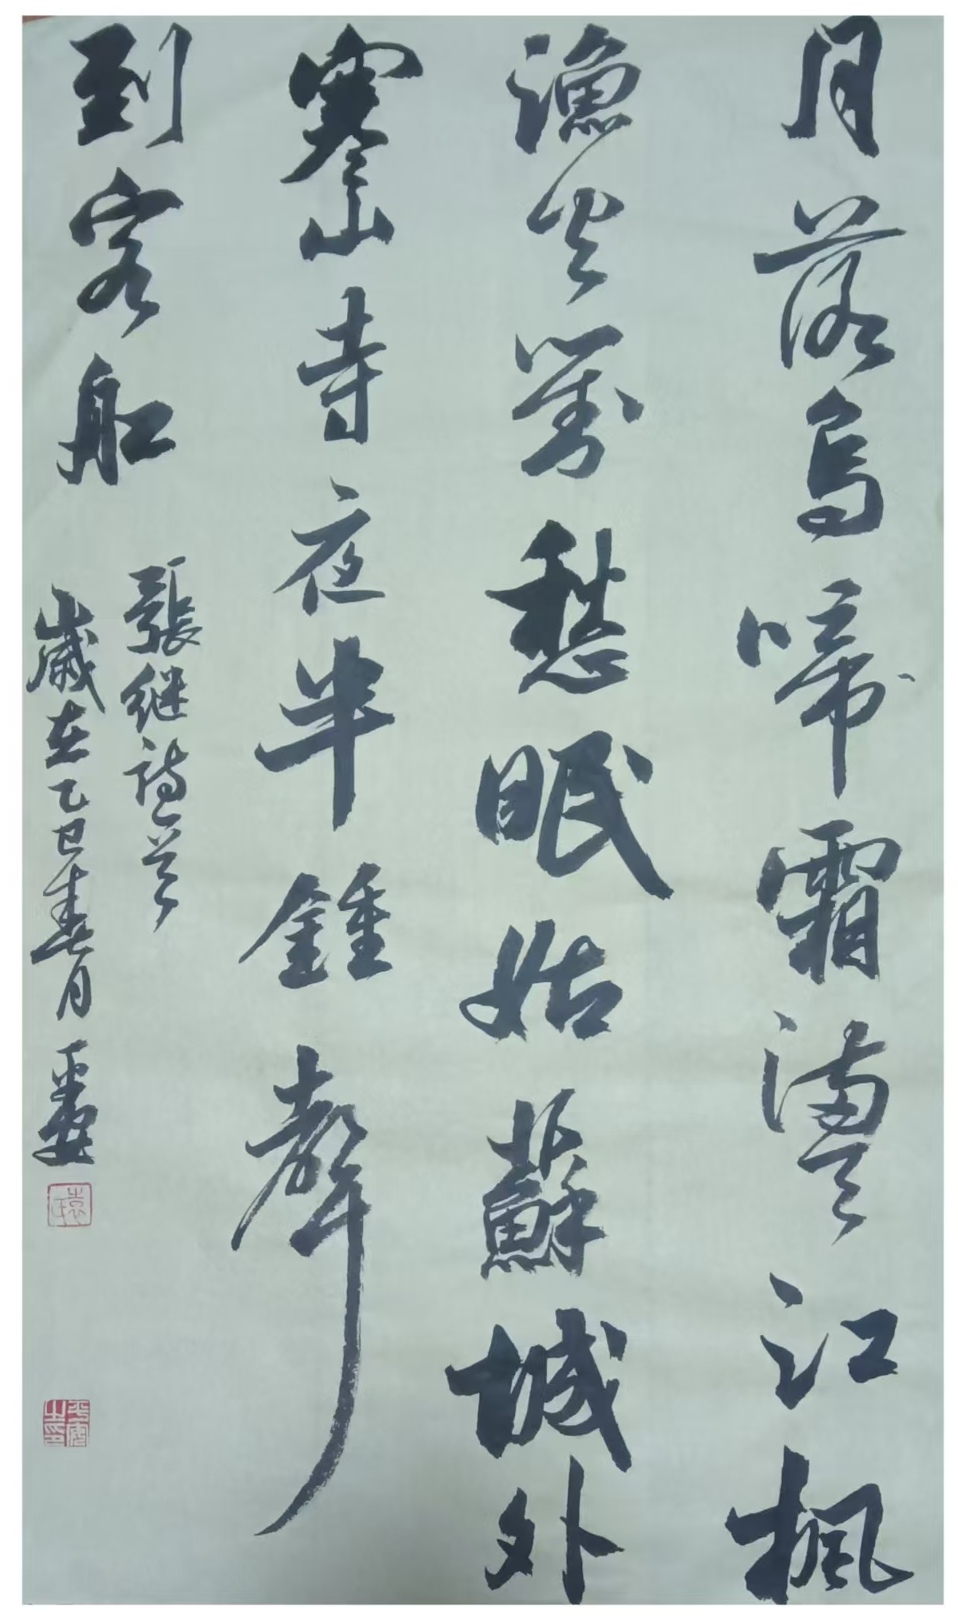 月落烏啼霜滿天江楓
漁火對愁眠姑蘇城外
寒山寺夜半鍾聲
到客船
張继詩一首
歲在乙巳春月